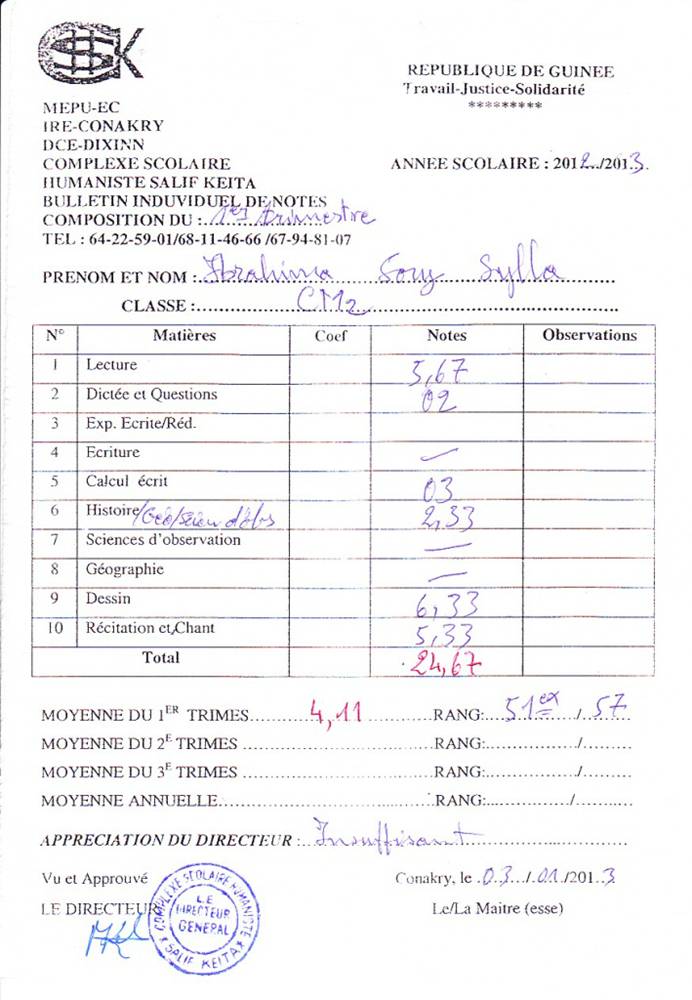 SK
REPUBLIQUE DE GUINEE
Travail-Justice-Solidarité
*********
MEPU-EC
IRE-CONAKRY
DCE-DIXINN
COMPLEXE SCOLAIRE
HUMANISTE SALIF KEITA
ANNEE SCOLAIRE : 2012../2013.
BULLETIN INDUVIDUEL DE NOTES
COMPOSITION DU :..1er trimestre
TEL : 64-22-59-01/68-11-46-66 /67-94-81-07
PRENOM ET NOM :..Ibrahima Sory Sylla
CLASSE :..........CM2..........
N° Matières Coef Notes Observations
1 Lecture 5,67
2 Dictée et Questions 02
3 Exp. Ecrite/Réd.
4 Ecriture —
5 Calcul écrit 03
6 Histoire/Géo/Scien d'obs 2,33
7 Sciences d'observation —
8 Géographie —
9 Dessin 6,33
10 Récitation et Chant 5,33
Total 24,67
MOYENNE DU 1ER TRIMES..........4,11..........RANG:...51ex.../.57..
MOYENNE DU 2E TRIMES ..........RANG:............/.........
MOYENNE DU 3E TRIMES ..........RANG:............/.........
MOYENNE ANNUELLE..........RANG:............/.........
APPRECIATION DU DIRECTEUR :..Insuffisant..........
Vu et Approuvé
Conakry, le .03.../.01./2013
LE DIRECTEUR
Le/La Maitre (esse)
COMPLEXE SCOLAIRE HUMANISTE
LE
DIRECTEUR
GENERAL
* SALIF KEITA *